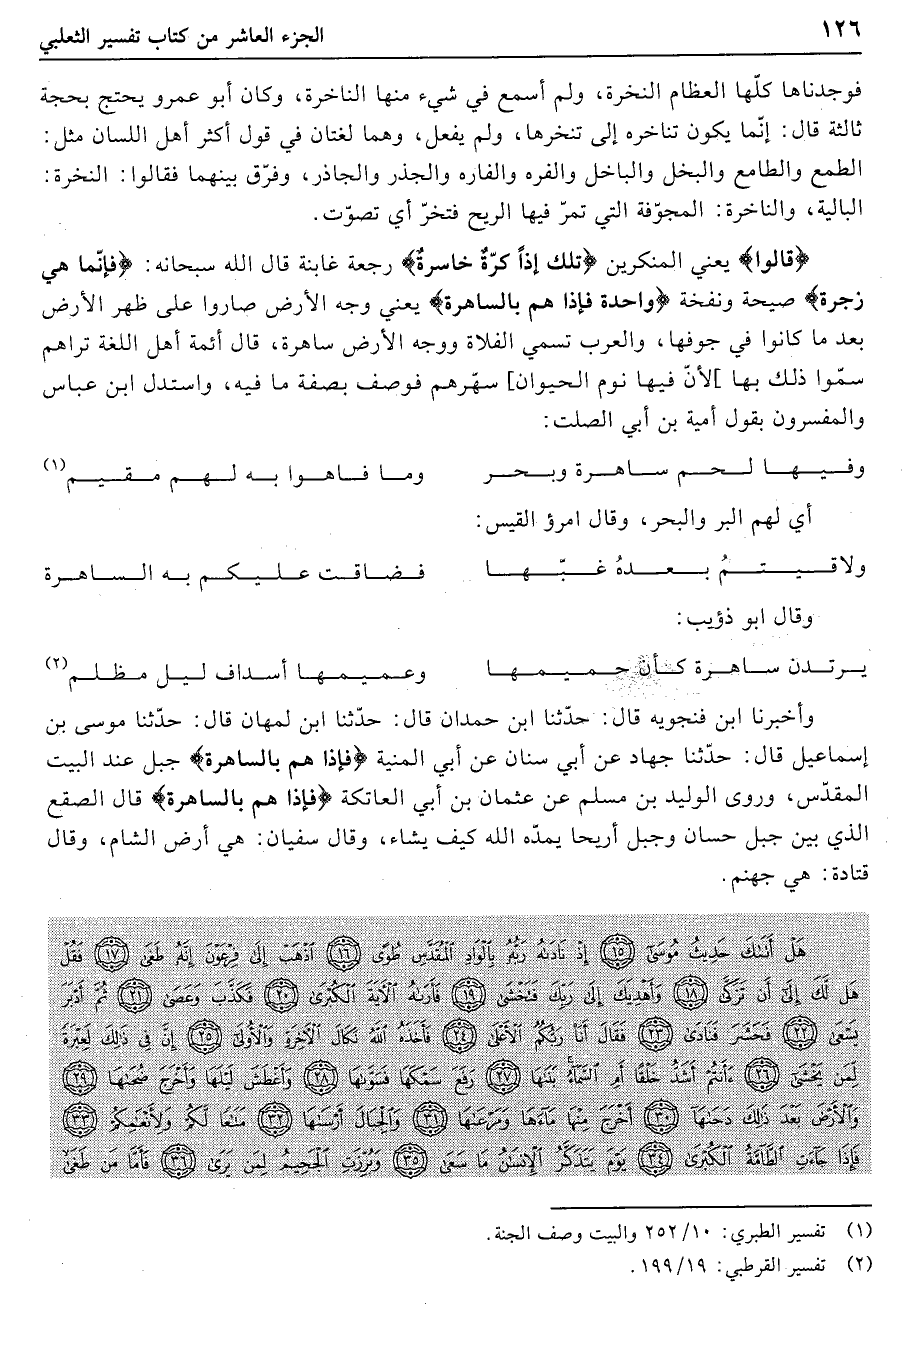 ١٢٦
الجزء العاشر من كتاب تفسير الثعلبي
فوجدناها كلّها العظام النخرة، ولم أسمع في شيء منها الناخرة، وكان أبو عمرو يحتج بحجة
ثالثة قال: إنّما يكون تناخره إلى تنخرها، ولم يفعل، وهما لغتان في قول أكثر أهل اللسان مثل:
الطمع والطامع والبخل والباخل والفره والفاره والجذر والجاذر، وفرّق بينهما فقالوا: النخرة:
البالية، والناخرة: المجوّفة التي تمرّ فيها الريح فتخرّ أي تصوّت.
﴿قالوا﴾ يعني المنكرين ﴿تلك إذاً كرّةٌ خاسرةٌ﴾ رجعة غابنة قال الله سبحانه: ﴿فإنّما هي
زجرة﴾ صيحة ونفخة ﴿واحدة فإذا هم بالساهرة﴾ يعني وجه الأرض صاروا على ظهر الأرض
بعد ما كانوا في جوفها، والعرب تسمي الفلاة ووجه الأرض ساهرة، قال أئمة أهل اللغة تراهم
سمّوا ذلك بها ]لأنّ فيها نوم الحيوان] سهّرهم فوصف بصفة ما فيه، واستدل ابن عباس
والمفسرون بقول أمية بن أبي الصلت:
وفيها لحم ساهرة وبحر وما فاهوا به لهم مقيم(١)
أي لهم البر والبحر، وقال امرؤ القيس:
ولاقيتمُ بعدهُ غبّها فضاقت عليكم به الساهرة
وقال ابو ذؤيب:
يرتدن ساهرة كأنّ حميمها وعميمها أسداف ليل مظلم(٢)
وأخبرنا ابن فنجويه قال: حدّثنا ابن حمدان قال: حدّثنا ابن لمهان قال: حدّثنا موسى بن
إسماعيل قال: حدّثنا جهاد عن أبي سنان عن أبي المنية ﴿فإذا هم بالساهرة﴾ جبل عند البيت
المقدّس، وروى الوليد بن مسلم عن عثمان بن أبي العاتكة ﴿فإذا هم بالساهرة﴾ قال الصقع
الذي بين جبل حسان وجبل أريحا يمدّه الله كيف يشاء، وقال سفيان: هي أرض الشام، وقال
قتادة: هي جهنم.
هَلْ أَتَىٰكَ حَدِيثُ مُوسَىٰٓ ﴿١٥﴾ إِذْ نَادَىٰهُ رَبُّهُۥ بِٱلْوَادِ ٱلْمُقَدَّسِ طُوًى ﴿١٦﴾ ٱذْهَبْ إِلَىٰ فِرْعَوْنَ إِنَّهُۥ طَغَىٰ ﴿١٧﴾ فَقُلْ
هَل لَّكَ إِلَىٰٓ أَن تَزَكَّىٰ ﴿١٨﴾ وَأَهْدِيَكَ إِلَىٰ رَبِّكَ فَتَخْشَىٰ ﴿١٩﴾ فَأَرَىٰهُ ٱلْءَايَةَ ٱلْكُبْرَىٰ ﴿٢٠﴾ فَكَذَّبَ وَعَصَىٰ ﴿٢١﴾ ثُمَّ أَدْبَرَ
يَسْعَىٰ ﴿٢٢﴾ فَحَشَرَ فَنَادَىٰ ﴿٢٣﴾ فَقَالَ أَنَا۠ رَبُّكُمُ ٱلْأَعْلَىٰ ﴿٢٤﴾ فَأَخَذَهُ ٱللَّهُ نَكَالَ ٱلْءَاخِرَةِ وَٱلْأُولَىٰٓ ﴿٢٥﴾ إِنَّ فِى ذَٰلِكَ لَعِبْرَةً
لِّمَن يَخْشَىٰٓ ﴿٢٦﴾ ءَأَنتُمْ أَشَدُّ خَلْقًا أَمِ ٱلسَّمَآءُ بَنَىٰهَا ﴿٢٧﴾ رَفَعَ سَمْكَهَا فَسَوَّىٰهَا ﴿٢٨﴾ وَأَغْطَشَ لَيْلَهَا وَأَخْرَجَ ضُحَىٰهَا ﴿٢٩﴾
وَٱلْأَرْضَ بَعْدَ ذَٰلِكَ دَحَىٰهَآ ﴿٣٠﴾ أَخْرَجَ مِنْهَا مَآءَهَا وَمَرْعَىٰهَا ﴿٣١﴾ وَٱلْجِبَالَ أَرْسَىٰهَا ﴿٣٢﴾ مَتَٰعًا لَّكُمْ وَلِأَنْعَٰمِكُمْ ﴿٣٣﴾
فَإِذَا جَآءَتِ ٱلطَّآمَّةُ ٱلْكُبْرَىٰ ﴿٣٤﴾ يَوْمَ يَتَذَكَّرُ ٱلْإِنسَٰنُ مَا سَعَىٰ ﴿٣٥﴾ وَبُرِّزَتِ ٱلْجَحِيمُ لِمَن يَرَىٰ ﴿٣٦﴾ فَأَمَّا مَن طَغَىٰ
(١) تفسير الطبري: ١٠/ ٢٥٢ والبيت وصف الجنة.
(٢) تفسير القرطبي: ١٩/ ١٩٩.